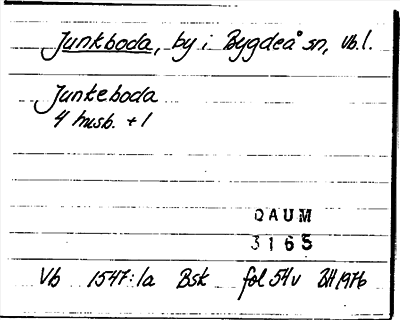 Junkboda, by i Bygdeå sn, Vb.l.
Junkeboda
4 husb. + 1
DAUM
3165
Vb 1547:1a Bsk fol 54v BH 1976